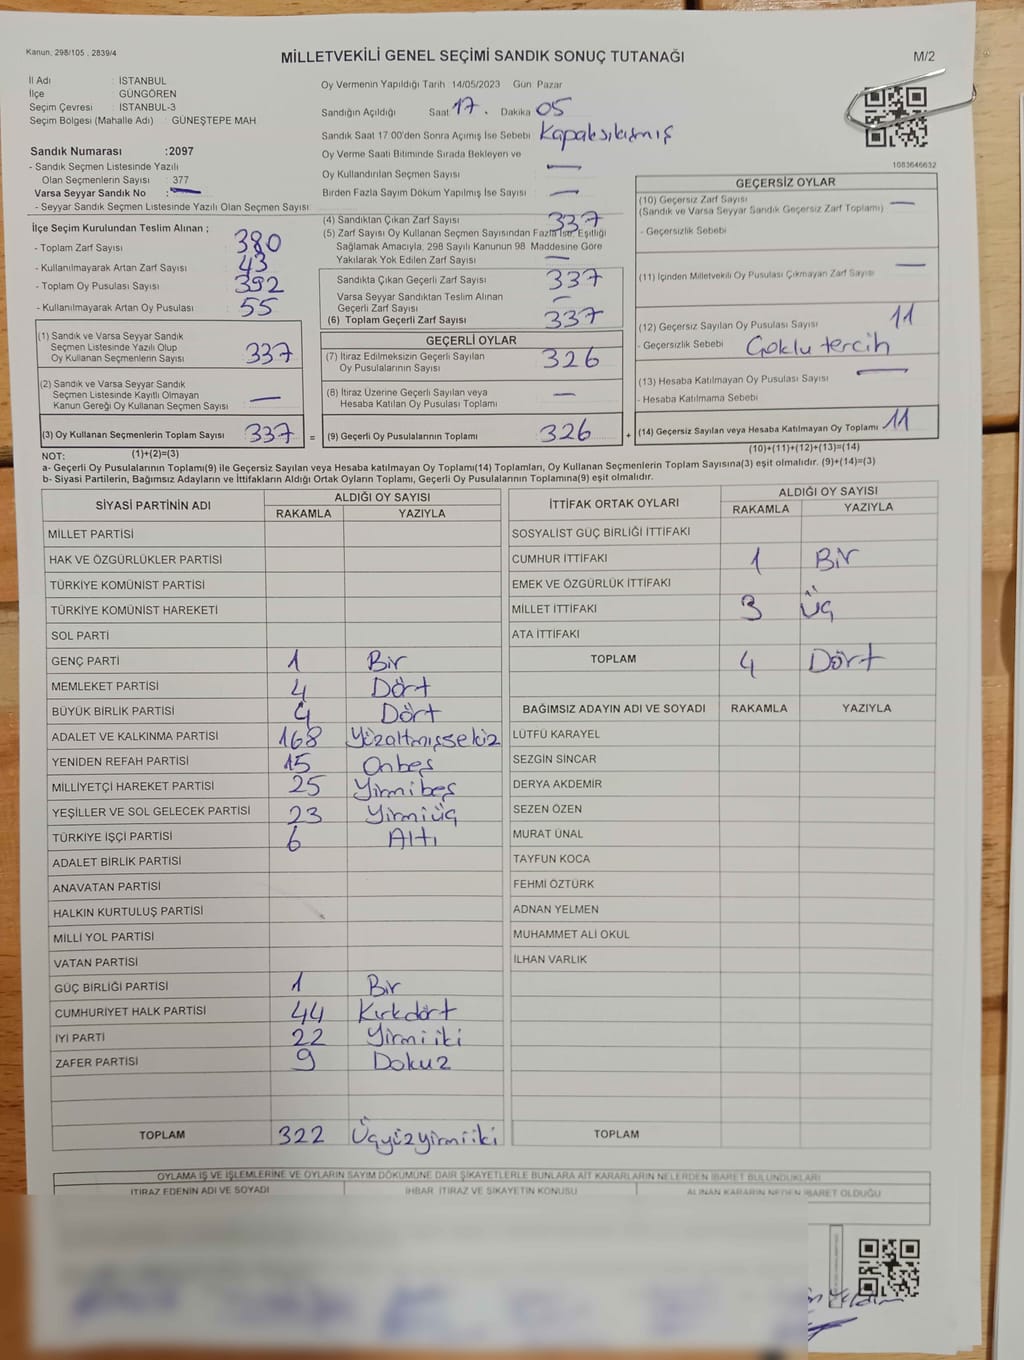 Kanun, 298/105 , 2839/4
MİLLETVEKİLİ GENEL SEÇİMİ SANDIK SONUÇ TUTANAĞI
M/2
İl Adı : İSTANBUL
İlçe : GÜNGÖREN
Seçim Çevresi : İSTANBUL-3
Seçim Bölgesi (Mahalle Adı) : GÜNEŞTEPE MAH
Sandık Numarası :2097
- Sandık Seçmen Listesinde Yazılı
Olan Seçmenlerin Sayısı : 377
Varsa Seyyar Sandık No : —
- Seyyar Sandık Seçmen Listesinde Yazılı Olan Seçmen Sayısı
Oy Vermenin Yapıldığı Tarih 14/05/2023 Gün Pazar
Sandığın Açıldığı Saat 17. Dakika 05
Sandık Saat 17:00'den Sonra Açımış İse Sebebi Kapaksıkışmış
Oy Verme Saati Bitiminde Sırada Bekleyen ve
Oy Kullandırılan Seçmen Sayısı —
Birden Fazla Sayım Döküm Yapılmış İse Sayısı —
1083646632
İlçe Seçim Kurulundan Teslim Alınan ;
- Toplam Zarf Sayısı 380
- Kullanılmayarak Artan Zarf Sayısı 43
- Toplam Oy Pusulası Sayısı 392
- Kullanılmayarak Artan Oy Pusulası 55
(1) Sandık ve Varsa Seyyar Sandık
Seçmen Listesinde Yazılı Olup
Oy Kullanan Seçmenlerin Sayısı 337
(2) Sandık ve Varsa Seyyar Sandık
Seçmen Listesinde Kayıtlı Olmayan
Kanun Gereği Oy Kullanan Seçmen Sayısı —
(3) Oy Kullanan Seçmenlerin Toplam Sayısı 337 =
(1)+(2)=(3)
(4) Sandıktan Çıkan Zarf Sayısı 337
(5) Zarf Sayısı Oy Kullanan Seçmen Sayısından Fazla İse, Eşitliği
Sağlamak Amacıyla, 298 Sayılı Kanunun 98. Maddesine Göre
Yakılarak Yok Edilen Zarf Sayısı —
Sandıkta Çıkan Geçerli Zarf Sayısı 337
Varsa Seyyar Sandıktan Teslim Alınan
Geçerli Zarf Sayısı —
(6) Toplam Geçerli Zarf Sayısı 337
GEÇERLİ OYLAR
(7) İtiraz Edilmeksizin Geçerli Sayılan
Oy Pusulalarının Sayısı 326
(8) İtiraz Üzerine Geçerli Sayılan veya
Hesaba Katılan Oy Pusulası Toplamı —
(9) Geçerli Oy Pusulalarının Toplamı 326 +
GEÇERSİZ OYLAR
(10) Geçersiz Zarf Sayısı —
(Sandık ve Varsa Seyyar Sandık Geçersiz Zarf Toplamı)
- Geçersizlik Sebebi
(11) İçinden Milletvekili Oy Pusulası Çıkmayan Zarf Sayısı —
(12) Geçersiz Sayılan Oy Pusulası Sayısı 11
- Geçersizlik Sebebi Çoklu tercih
(13) Hesaba Katılmayan Oy Pusulası Sayısı —
- Hesaba Katılmama Sebebi
(14) Geçersiz Sayılan veya Hesaba Katılmayan Oy Toplamı 11
(10)+(11)+(12)+(13)=(14)
NOT:
a- Geçerli Oy Pusulalarının Toplamı(9) ile Geçersiz Sayılan veya Hesaba katılmayan Oy Toplamı(14) Toplamları, Oy Kullanan Seçmenlerin Toplam Sayısına(3) eşit olmalıdır. (9)+(14)=(3)
b- Siyasi Partilerin, Bağımsız Adayların ve İttifakların Aldığı Ortak Oyların Toplamı, Geçerli Oy Pusulalarının Toplamına(9) eşit olmalıdır.
SİYASİ PARTİNİN ADI ALDIĞI OY SAYISI
RAKAMLA YAZIYLA
MİLLET PARTİSİ
HAK VE ÖZGÜRLÜKLER PARTİSİ
TÜRKİYE KOMÜNİST PARTİSİ
TÜRKİYE KOMÜNİST HAREKETİ
SOL PARTİ
GENÇ PARTİ 1 Bir
MEMLEKET PARTİSİ 4 Dört
BÜYÜK BİRLİK PARTİSİ 4 Dört
ADALET VE KALKINMA PARTİSİ 168 Yüzaltmışsekiz
YENİDEN REFAH PARTİSİ 15 Onbeş
MİLLİYETÇİ HAREKET PARTİSİ 25 Yirmibeş
YEŞİLLER VE SOL GELECEK PARTİSİ 23 Yirmiüç
TÜRKİYE İŞÇİ PARTİSİ 6 Altı
ADALET BİRLİK PARTİSİ
ANAVATAN PARTİSİ
HALKIN KURTULUŞ PARTİSİ
MİLLİ YOL PARTİSİ
VATAN PARTİSİ
GÜÇ BİRLİĞİ PARTİSİ 1 Bir
CUMHURİYET HALK PARTİSİ 44 Kırkdört
İYİ PARTİ 22 Yirmiiki
ZAFER PARTİSİ 9 Dokuz
TOPLAM 322 Üçyüzyirmiiki
İTTİFAK ORTAK OYLARI ALDIĞI OY SAYISI
RAKAMLA YAZIYLA
SOSYALİST GÜÇ BİRLİĞİ İTTİFAKI
CUMHUR İTTİFAKI 1 Bir
EMEK VE ÖZGÜRLÜK İTTİFAKI
MİLLET İTTİFAKI 3 Üç
ATA İTTİFAKI
TOPLAM 4 Dört
BAĞIMSIZ ADAYIN ADI VE SOYADI RAKAMLA YAZIYLA
LÜTFÜ KARAYEL
SEZGİN SİNCAR
DERYA AKDEMİR
SEZEN ÖZEN
MURAT ÜNAL
TAYFUN KOCA
FEHMİ ÖZTÜRK
ADNAN YELMEN
MUHAMMET ALİ OKUL
İLHAN VARLIK
TOPLAM
OYLAMA İŞ VE İŞLEMLERİNE VE OYLARIN SAYIM DÖKÜMÜNE DAİR ŞİKAYETLERLE BUNLARA AİT KARARLARIN NELERDEN İBARET BULUNDUKLARI
İTİRAZ EDENİN ADI VE SOYADI İHBAR İTİRAZ VE ŞİKAYETİN KONUSU ALINAN KARARIN NEDEN İBARET OLDUĞU